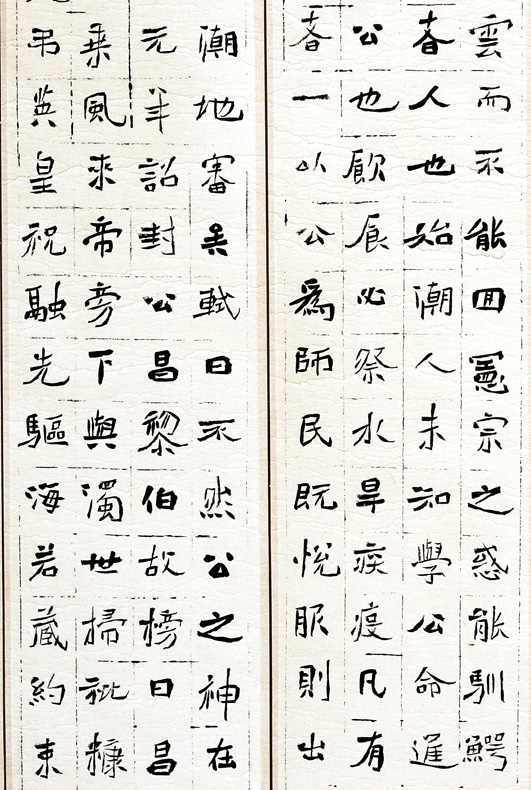 雲而不能囬憲宗之惑能馴鱷
者人也始潮人未知學公命進
公也飲食必祭水旱疾疫凡有
者一以公爲師民既悅服則出
潮地審矣軾曰不然公之神在
元年詔封公昌黎伯故榜曰昌
乘風來帝旁下與濁世掃秕糠
弔英皇祝融先驅海若藏約束